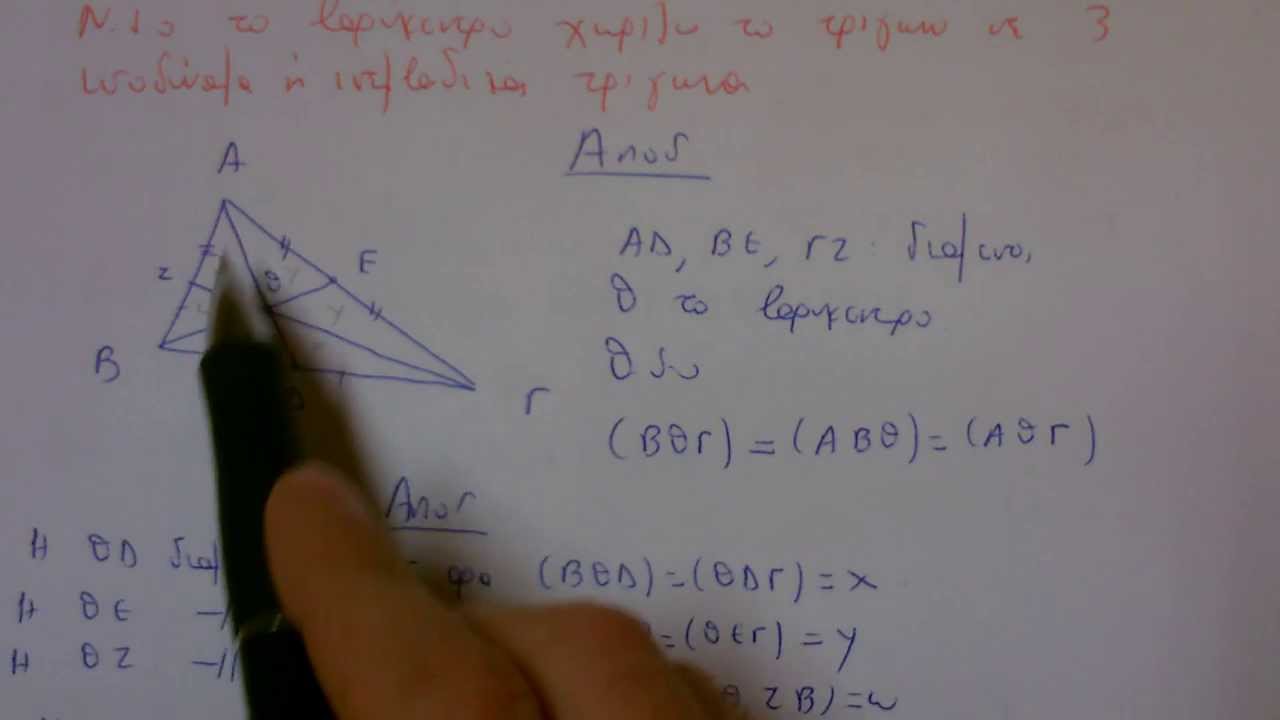 Ν.δ.ο το βαρύκεντρο χωρίζει το τρίγωνο σε 3
ισοδύναμα ή ισεμβαδικά τρίγωνα
Αποδ
Α
Ε
Ζ
θ
Β
Γ
ΑΔ, ΒΕ, ΓΖ : διαμεσοι
θ το βαρυκεντρο
θ δω
(ΒθΓ) = (ΑΒθ) = (ΑθΓ)
Αποδ
Η θΔ διαμ αρα (ΒθΔ) = (θΔΓ) = x
Η θΕ -//- = (θΕΓ) = y
Η θΖ -// θΖΒ) = ω